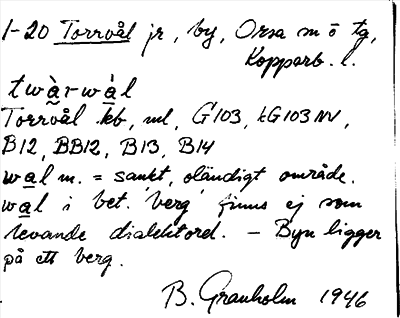 1-20 Torrvål jr, by, Orsa sn ö tg,
Kopparb. l.
twàr-wàl
Torrvål kb, ml, G103, tG103NV,
B12, BB12, B13, B14
wal m. = sankt, oländigt område.
wal i bet. 'berg' finns ej som
levande dialektord. - Byn ligger
på ett berg.
B. Granholm 1946